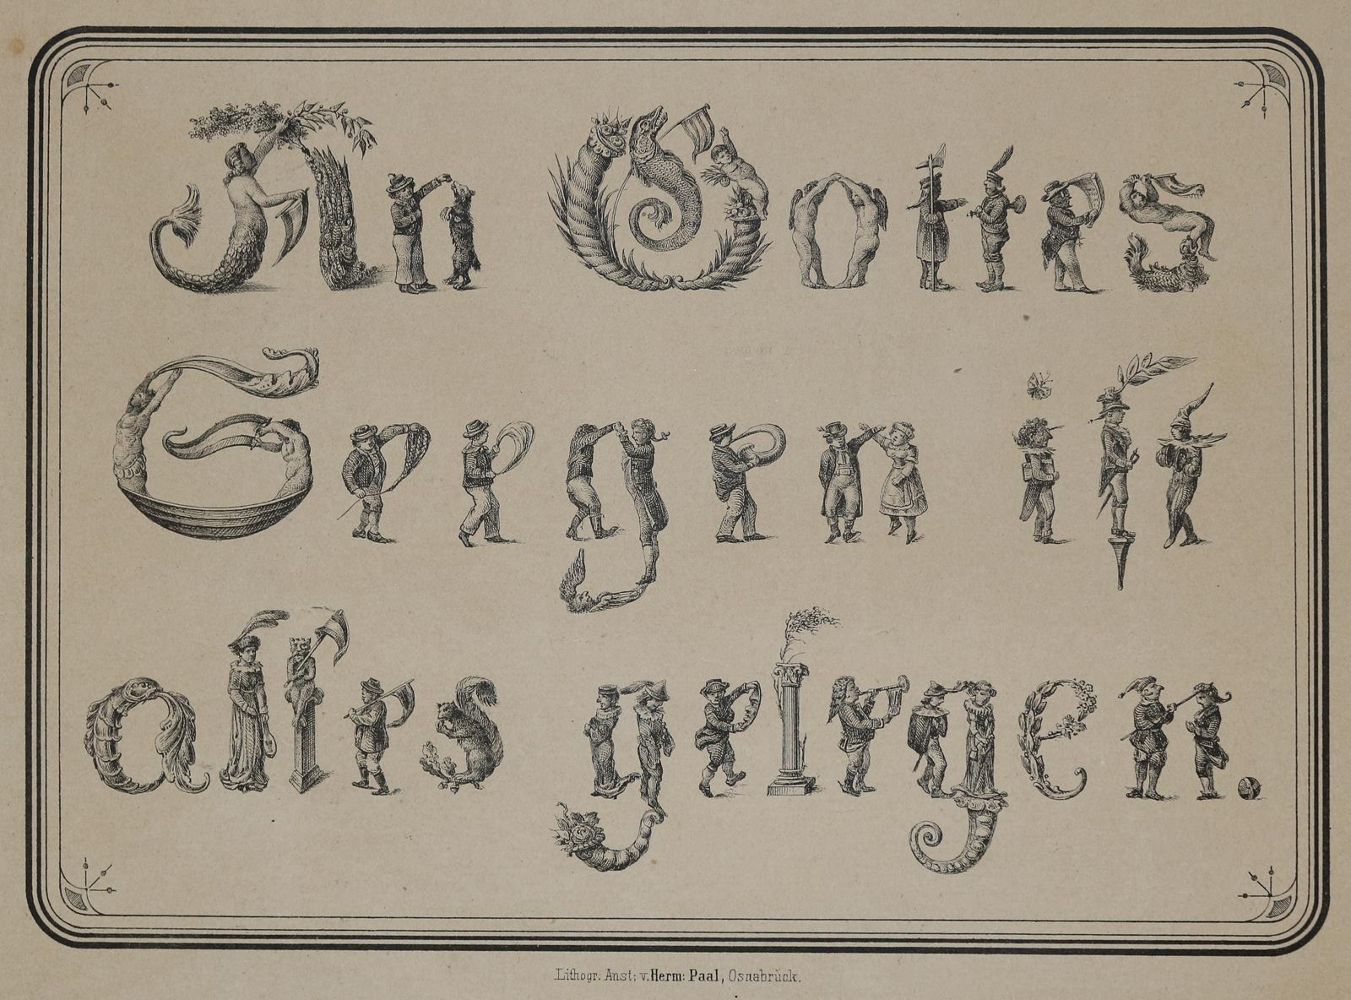 An Gottes
Seegen iſt
alles gelegen.
Lithogr. Anst: v. Herm: Paal, Osnabrück.